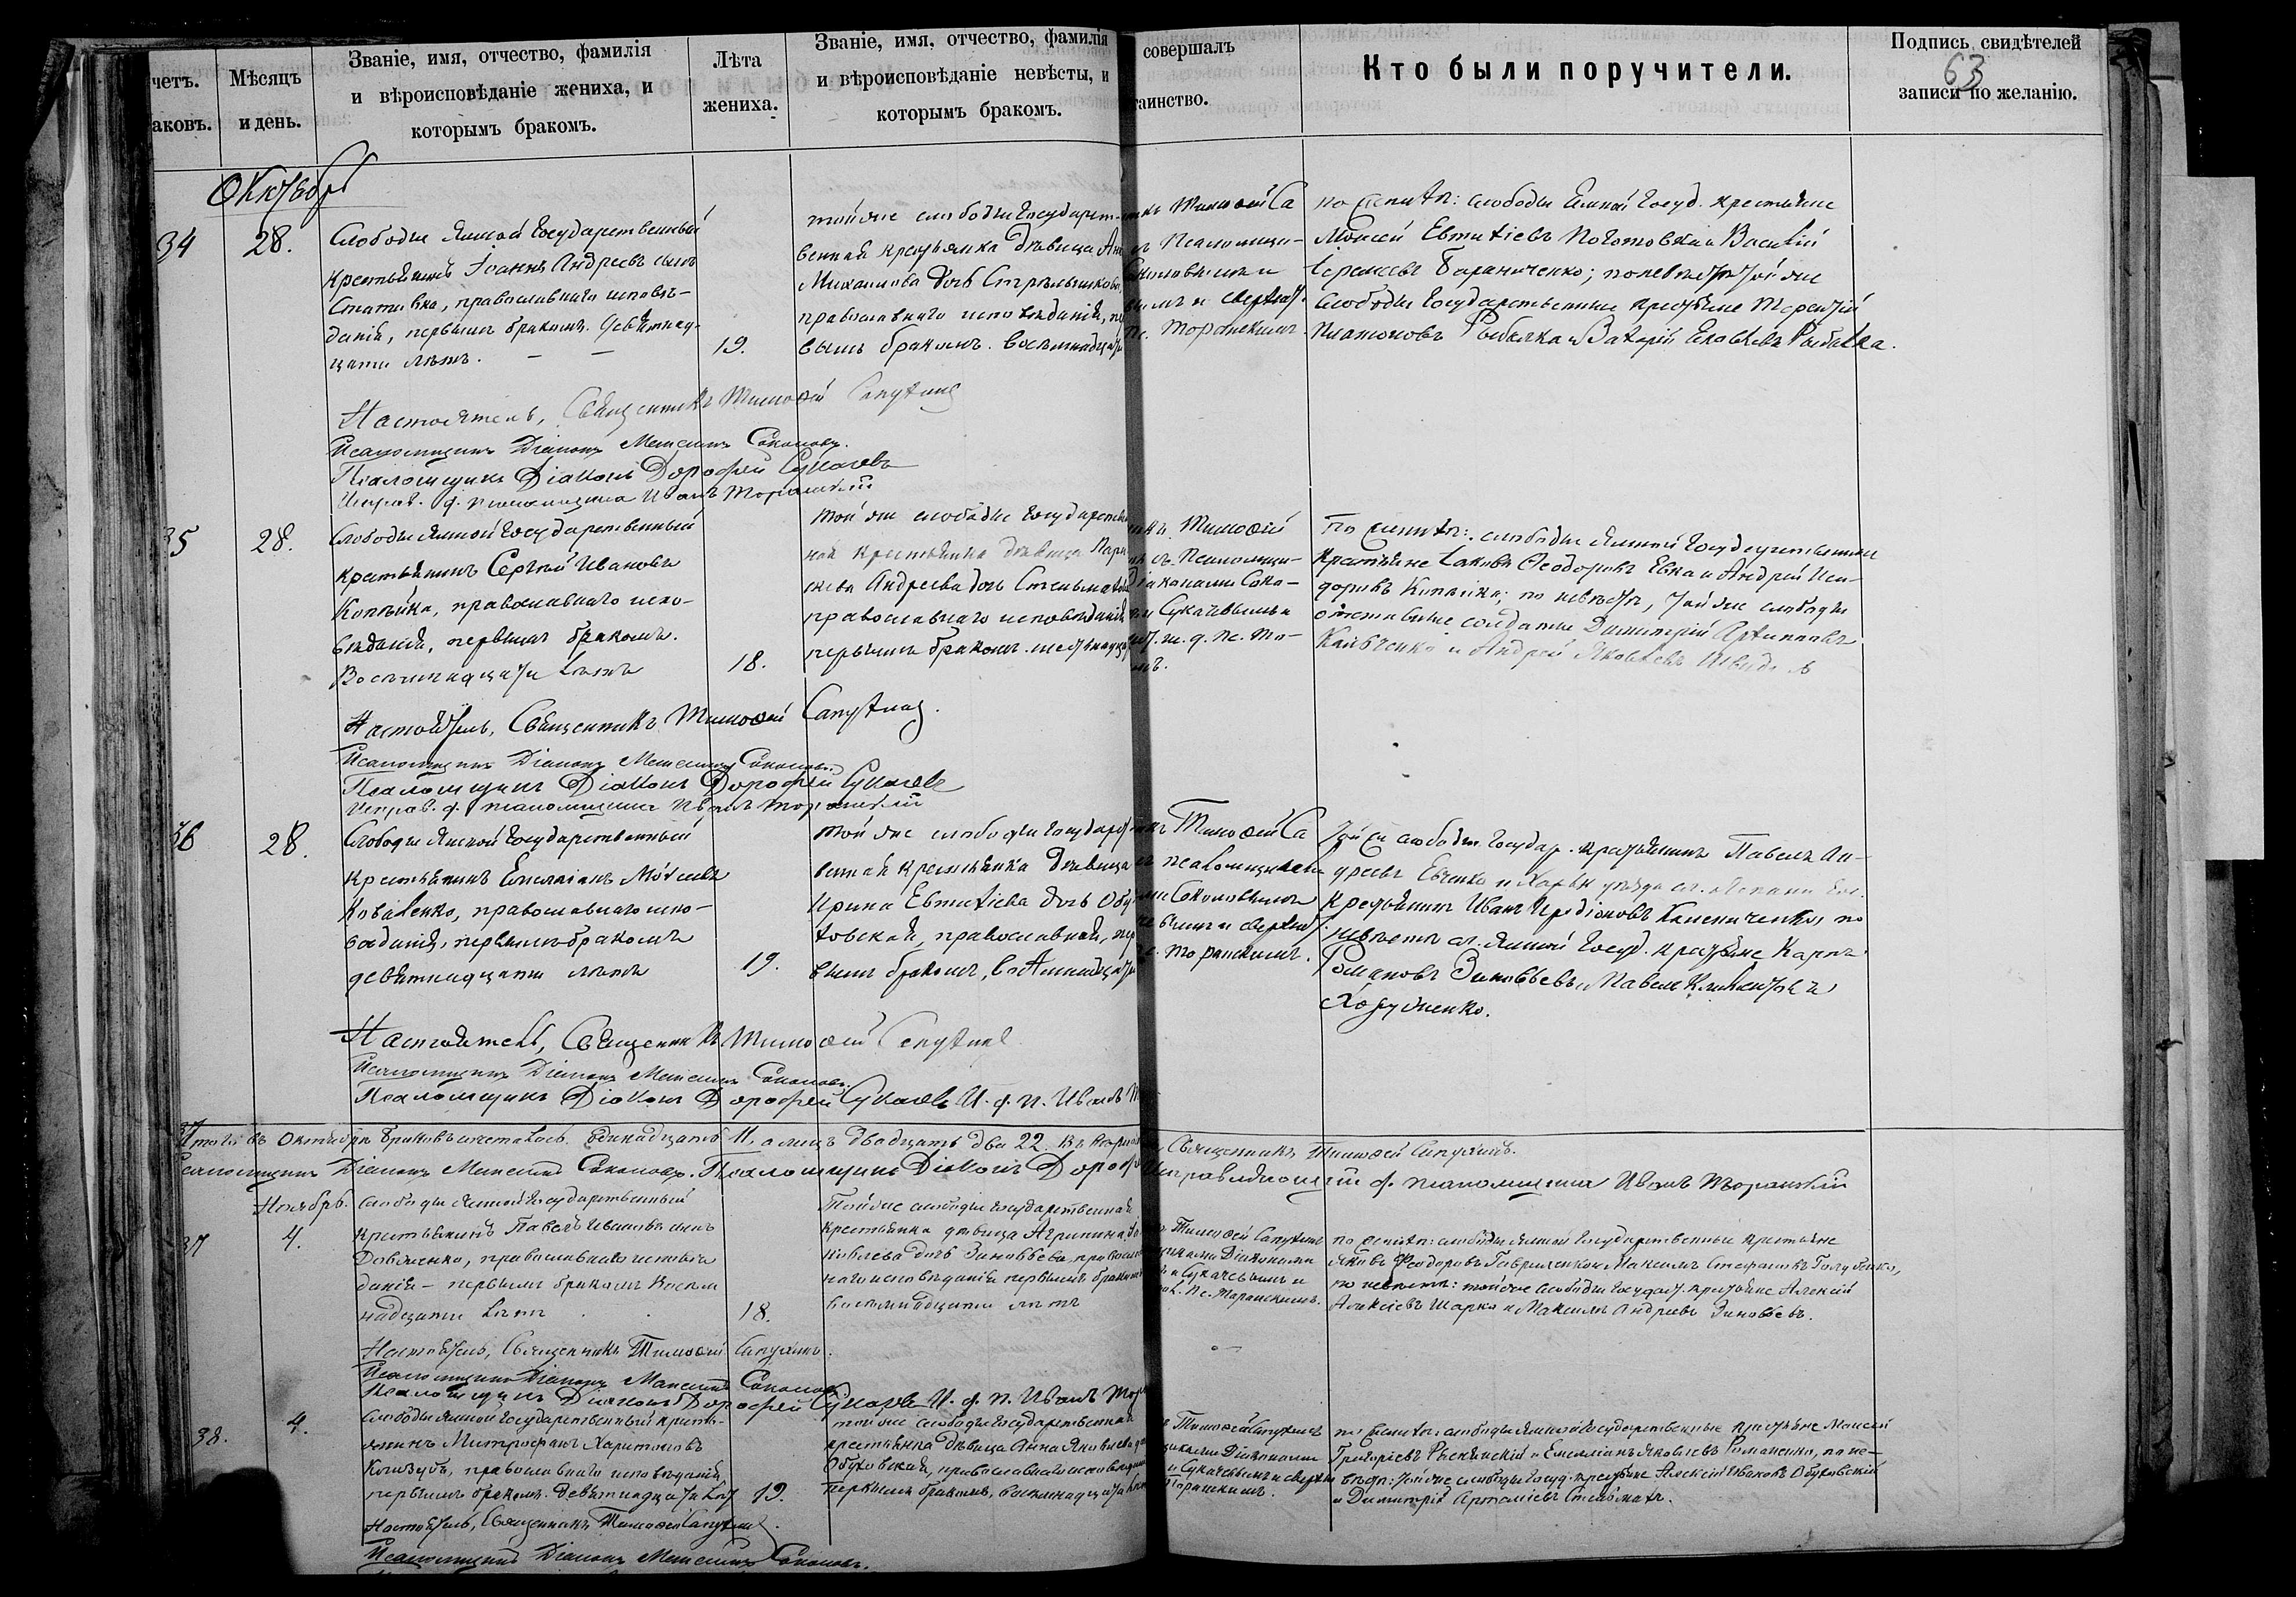 четъ.
аковъ.
Мѣсяцъ
и день.
Званіе, имя, отчество, фамилія
и вѣроисповѣданіе жениха, и
которымъ бракомъ.
Лѣта
жениха.
Званіе, имя, отчество, фамилія
и вѣроисповѣданіе невѣсты, и
которымъ бракомъ.
совершалъ
таинство.
Кто были поручители.
Подпись свидѣтелей
записи по желанію.
63
Октябрь
34
28.
Слободы Ямной Государственный
крестьянинъ Іоаннъ Андреевъ сынъ
православнаго исповѣ-
данія, первымъ бракомъ. Девятнад-
цати лѣтъ.
19.
той же слободы Государст-
венная крестьянка дѣвица
Михаилова дочь
православнаго исповѣданія, пер
вымъ бракомъ. восемнадцати
Тимоѳей Са
Псаломщи-
Соколовымъ и
Пс. Торанскимъ.
по женихѣ: слободы Ямной Госуд. крестьяне
Моисей Евтихіевъ и Василій
Бараниченко; по невѣстѣ той же
слободы Государственные крестьяне Терентій
Платоновъ Рыбалка и Захарій Яковлевъ Рыбалка.
Настоятель, Священникъ Тимоѳей Сапухинъ
Псаломщикъ Діаконъ Максимъ Соколовъ.
Псаломщикъ Діаконъ Дорофей Сукачевъ
Исправ. д. псаломщика Иванъ Торанскій
35
28.
Слободы Ямной Государственный
крестьянинъ Сергѣй Ивановъ
Копѣйка, православнаго испо-
вѣданія, первымъ бракомъ.
Восемнадцати лѣтъ
18.
той же слободы Государствен
ная крестьянка дѣвица Пара
скева Андреева дочь Стельмахова
православнаго исповѣданія
первымъ бракомъ. шестнадца
Тимоѳей
съ Псаломщи-
Діаконами Соко-
и Сукачевымъ и
и. д. пс. То-
По женихѣ: слободы Ямной Государственные
крестьяне Іаковъ Ѳеодоровъ Евка и Андрей Иси-
доровъ Копѣйка; по невѣстѣ, той же слободы
отставные солдаты Димитрій Архиповъ
и Андрей Яковлевъ
Настоятель, Священникъ Тимоѳей Сапухинъ.
Псаломщикъ Діаконъ Максимъ Соколовъ.
Псаломщикъ Діаконъ Дорофей Сукачевъ
Исправ. д. псаломщика Иванъ Торанскій
36
28.
Слободы Ямной Государственный
крестьянинъ Емеліанъ Моѵсеевъ
Коваленко, православнаго испо-
вѣданія, первымъ бракомъ
девятнадцати лѣтъ
19.
той же слободы Государст
венная крестьянка дѣвица
Ирина Евтихіева дочь Обу
ховская, православная, пер
вымъ бракомъ, восемнадцати
Тимоѳей Са
псаломщиками
Соколовымъ
Торанскимъ.
слободы Государ. крестьянинъ Павелъ Ан-
дреевъ Евченко и Харьк. уѣзда
крестьянинъ Иванъ Иродіоновъ по
невѣстѣ сл. Ямной Госуд. крестьяне Карпъ
Романовъ Зиновьевъ и Павелъ Климентьевъ
Настоятель, Священникъ Тимоѳей Сапухинъ
Псаломщикъ Діаконъ Максимъ Соколовъ.
Псаломщикъ Діаконъ Дорофей Сукачевъ И. д. п. Иванъ
Итого въ Октябрѣ браковъ одинадцать 11, а лицъ двадцать два 22.
Священникъ Тимоѳей Сапухинъ.
Псаломщикъ Діаконъ Максимъ Соколовъ. Псаломщикъ Діаконъ Дороф
Исправляющій д. псаломщика Иванъ Торанскій
Ноябрь.
37
4.
Слободы Ямной Государственный
крестьянинъ Павелъ Ивановъ сынъ
Довженко, православнаго исповѣ
данія – первымъ бракомъ Восем
надцати лѣтъ
18.
Той же слободы Государственная
крестьянка дѣвица Агрипина
Яковлева дочь Зиновьева, православ
наго исповѣданія первымъ бракомъ
восемнадцати лѣтъ
Тимоѳей Сапухинъ
Діаконами
и Сукачевымъ и
Пс. Торанскимъ.
по женихѣ: слободы Ямной Государственные крестьяне
Яковъ Ѳеодоровъ Гавриленко и Максимъ Стефановъ
по невѣстѣ: той же слободы Государ. крестьяне Алексій
Алексіевъ Шарко и Максимъ Андреевъ Зиновьевъ.
Настоятель, Священникъ Тимоѳей Сапухинъ.
Псаломщикъ Діаконъ Максимъ Соколовъ
Псаломщикъ Діаконъ Дорофей Сукачевъ И. д. п. Иванъ Тор
38.
4.
Слободы Ямной Государственный кресть-
янинъ Митрофанъ Харитоновъ
православнаго исповѣданія,
первымъ бракомъ. Девятнадцати лѣт
19.
той же слободы Государственная
крестьянка дѣвица Анна Яковлева
Обуховская, православнаго исповѣдан
первымъ бракомъ, восемнадцати
Тимоѳей Сапухинъ
Діаконами
и Сукачевымъ и сверхъ
Торанскимъ.
по женихѣ: слободы Ямной Государственные крестьяне Моисей
Григоріевъ и Емеліанъ Яковлевъ Романенко, по не-
вѣстѣ: той же слободы Госуд. крестьяне Алексій Ивановъ Обуховскій
и Димитрій Стельмахъ.
Настоятель, Священникъ Тимоѳей Сапухинъ.
Псаломщикъ Діаконъ Максимъ Соколовъ.